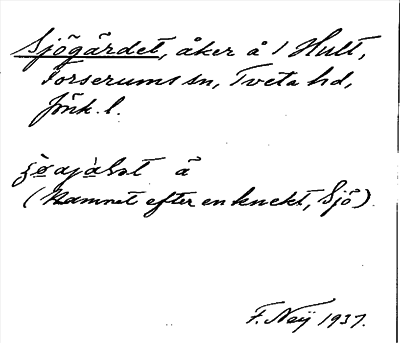 Sjögärdet, åker å 1 Hult,
Forserums sn, Tveta hd,
Jönk. l.
å
(Namnet efter en knekt, Sjö).
F. Neij 1937.